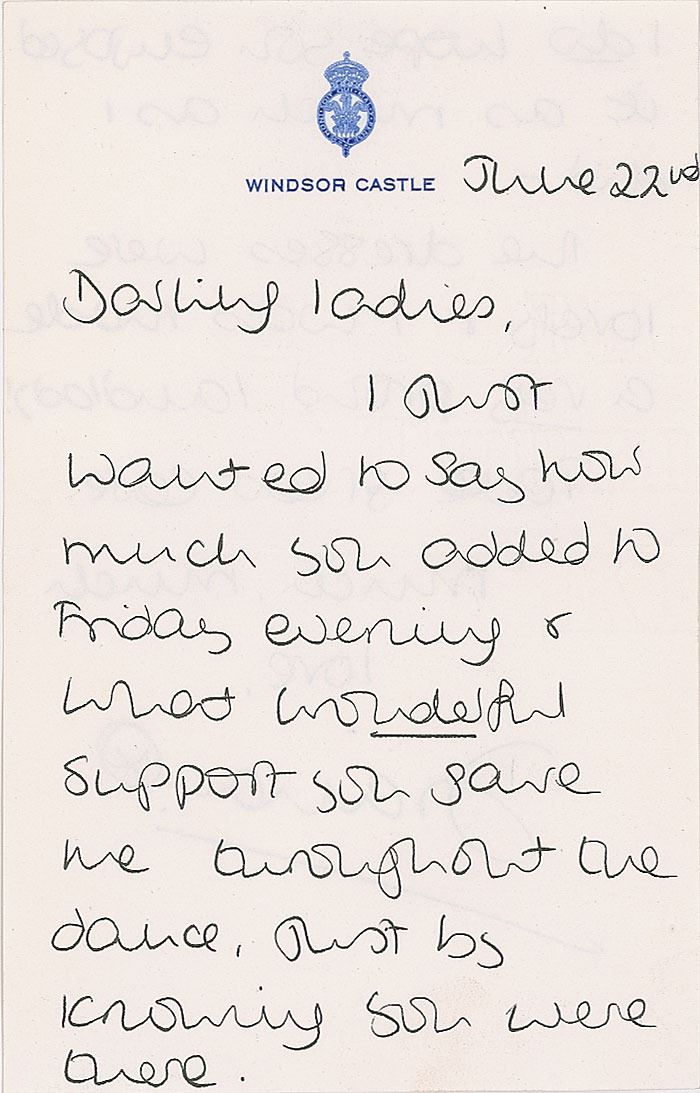 WINDSOR CASTLE June 22nd
Darling ladies,
I just
wanted to say how
much you added to
Friday evening &
what wonderful
support you gave
me throughout the
dance, just by
knowing you were
there.